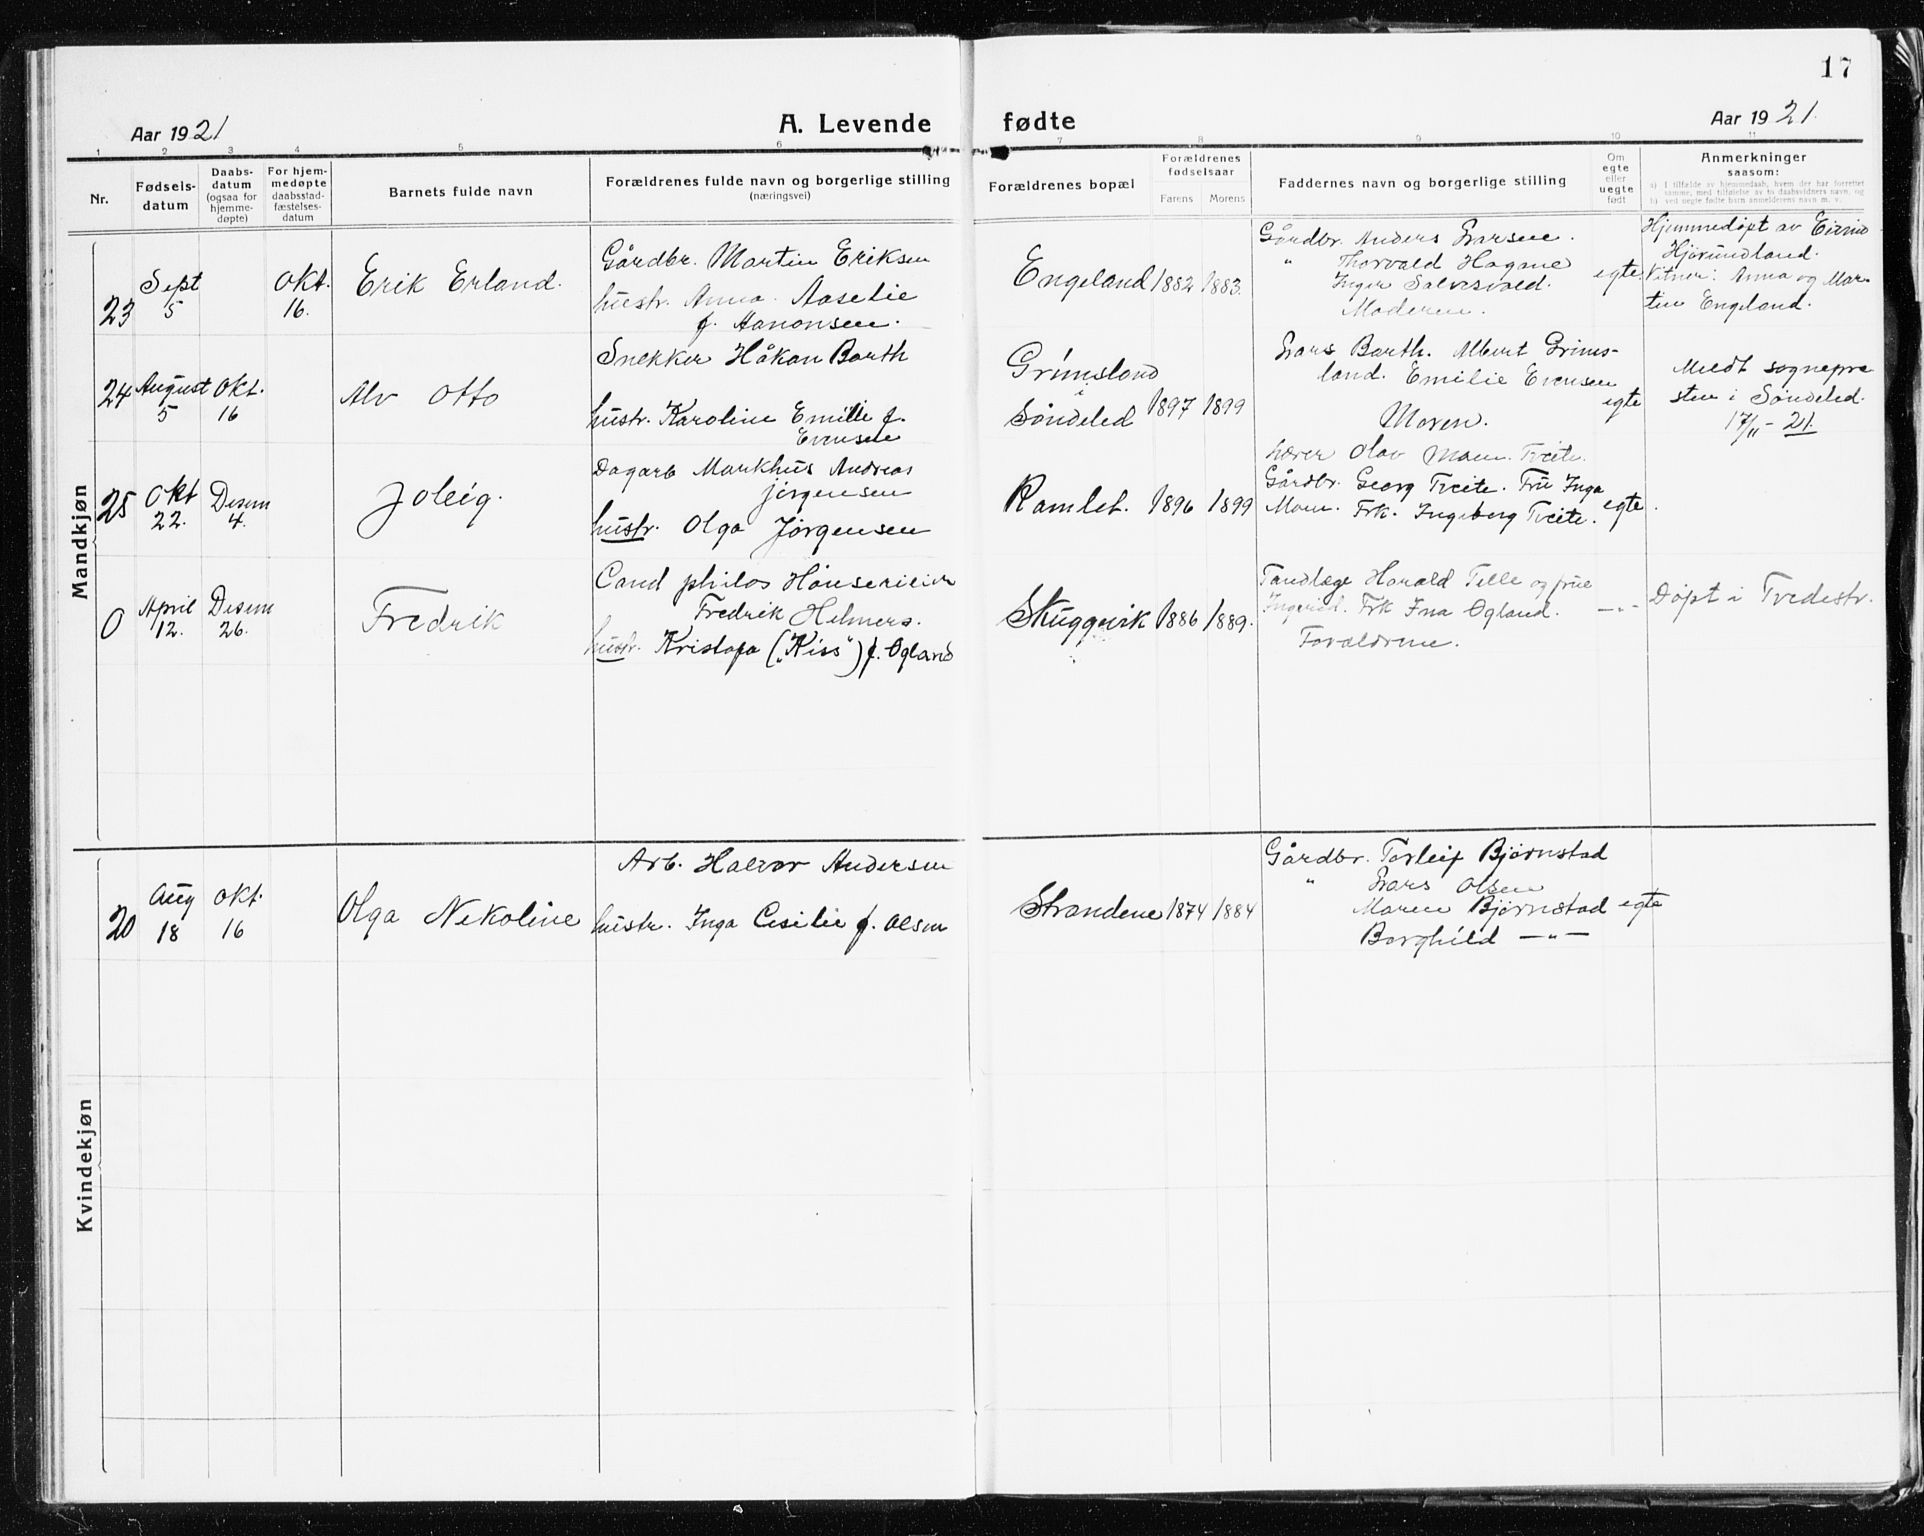 17
Aar 1921
A. Levende fødte
Aar 1921.
1 2 3 4 5 6 7 8 9 10 11
Nr.
Fødsels-
datum
Daabs-
datum
(ogsaa for
hjemme-
døpte)
For hjem-
medøpte
daabsstad-
fæstelses-
datum
Barnets fulde navn
Forældrenes fulde navn og borgerlige stilling
(næringsvei)
Forældrenes bopæl
Forældrenes
fødselsaar
Farens Morens
Faddernes navn og borgerlige stilling
Om
egte
eller
uegte
født
Anmerkninger
saasom:
a) I tilfælde av hjemmedaab, hvem der har forrettet
samme, med tilføielse av to daabsvidners navn, og
b) ved uegte fødte barn anmelderens navn m. v.
Mandkjøn
23
Sept
5
Okt.
16.
Erik Erland.
Gårdbr. Martin Eriksen
hustr. Anna Aaselie
f. Aanonsen.
Engeland
1882 1883.
Gårdbr. Anders Larsen.
" Thorvald Hagane
Inger Salvesvold.
Moderen.
egte
Hjemmedøpt av Eivind
Hjørundland.
Vitner: Anna og Mar-
tin Engeland.
24
August
5
Okt.
16
Alv Otto
Snekker Håkan Barth
hustr. Karoline Emilie f.
Evensen
Grimsland
i
Søndeled
1897 1899
Lars Barth. Albert Grims-
land. Emilie Evensen
Moren.
egte
Meldt sognepre
sten i Søndeled.
17/11 - 21.
25
Okt
22.
Desem
4.
Joleig.
Dagarb Markhus Andreas
Jørgensen
hustr. Olga Jørgensen
Ramlet.
1896 1899
Lærer Olav Moen. Tveite.
Gårdbr. Georg Tveite. Fru Inga
Moen. Frk. Ingeborg Tveite.
egte.
0
April
12.
Desem
26.
Fredrik
Cand philos Hønserieier
Fredrik Helmers.
hustr. Kristofa („Kiss") f. Ogland
Skuggevik
1886 1889.
Tandlæge Harald Telle og frue
Ingerid. Frk Ina Ogland.
Forældrene.
— " —
Døpt i Tvedestr.
Kvindekjøn
20
Aug
18
Okt.
16
Olga Nekoline
Arb. Halvor Andersen
hustr. Inga Cesilie f. Olsen
Strandene
1874 1884
Gårdbr. Torleif Bjørnstad
" Lars Olsen
Maren Bjørnstad
Borghild — " —
egte